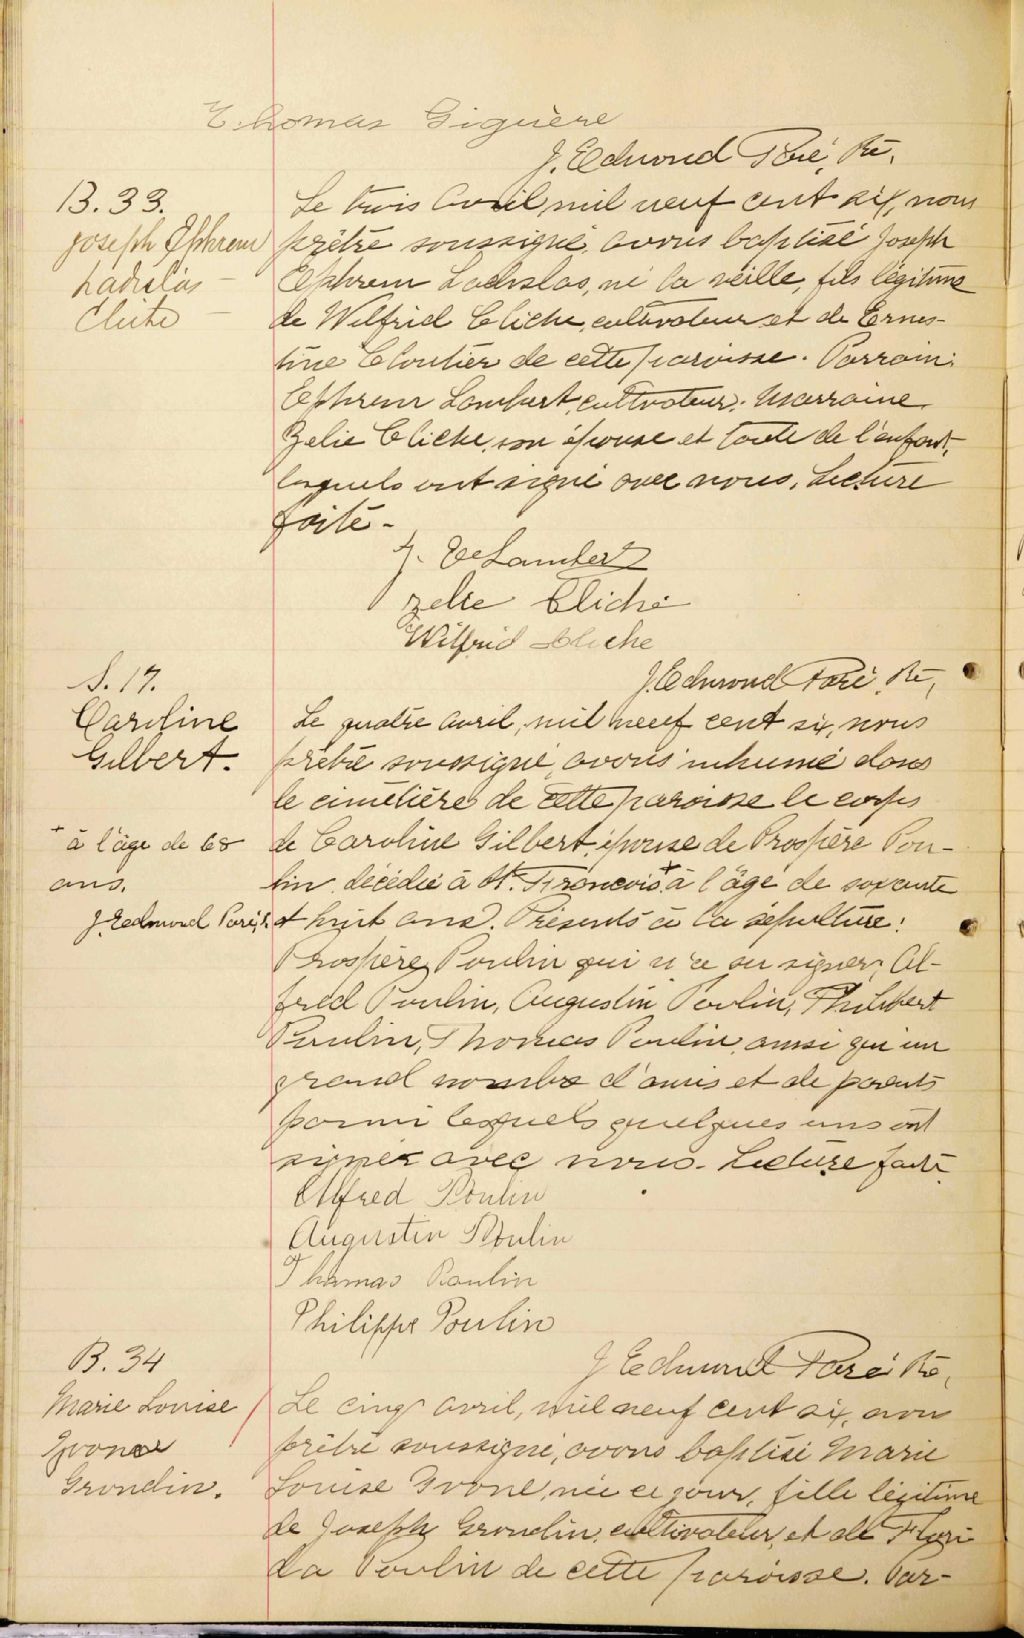 Thomas Giguère
J. Edmond Paré, Ptre.
B. 33.
Joseph Ephrem
Ladislas
Cliche
Le trois avril, mil neuf cent six, nous
prêtre soussigné, avons baptisé Joseph
Ephrem Ladislas, né la veille, fils légitime
de Wilfrid Cliche, cultivateur et de Ernes-
tine Cloutier de cette paroisse. Parrain:
Ephrem Lambert, cultivateur. Marraine
Zelie Cliche, son épouse et tante de l'enfant,
lesquels ont signé avec nous. Lecture
faite-
J. E Lambert
Zelie Cliche
Wilfrid Cliche
J. Edmond Paré Ptre,
S. 17.
Caroline
Gilbert.
+ à l'âge de 68
ans.
J. Edmond Paré,
Le quatre avril, mil neuf cent six, nous
prêtre soussigné, avons inhumé dans
le cimetière de cette paroisse le corps
de Caroline Gilbert, épouse de Prospère Pou-
lin décédée à St. François + à l'âge de soixante
et huit ans. Présents à la sépulture:
Prospère Poulin qui n'a su signer, Al-
fred Poulin, Augustin Poulin, Philibert
Poulin, Thomas Poulin, ainsi qu'un
grand nombre d'amis et de parents
parmi lesquels quelques uns ont
signés avec nous. Lecture faite.
Alfred Poulin
Augustin Poulin
Thomas Poulin
Philippe Poulin
J Edmond Paré Ptre,
B. 34
Marie Louise
Yvonne
Grondin.
Le cinq avril, mil neuf cent six, nous
prêtre soussigné, avons baptisé Marie
Louise Yvone, née ce jour, fille légitime
de Joseph Grondin, cultivateur, et de Flori
da Poulin de cette paroisse. Par-